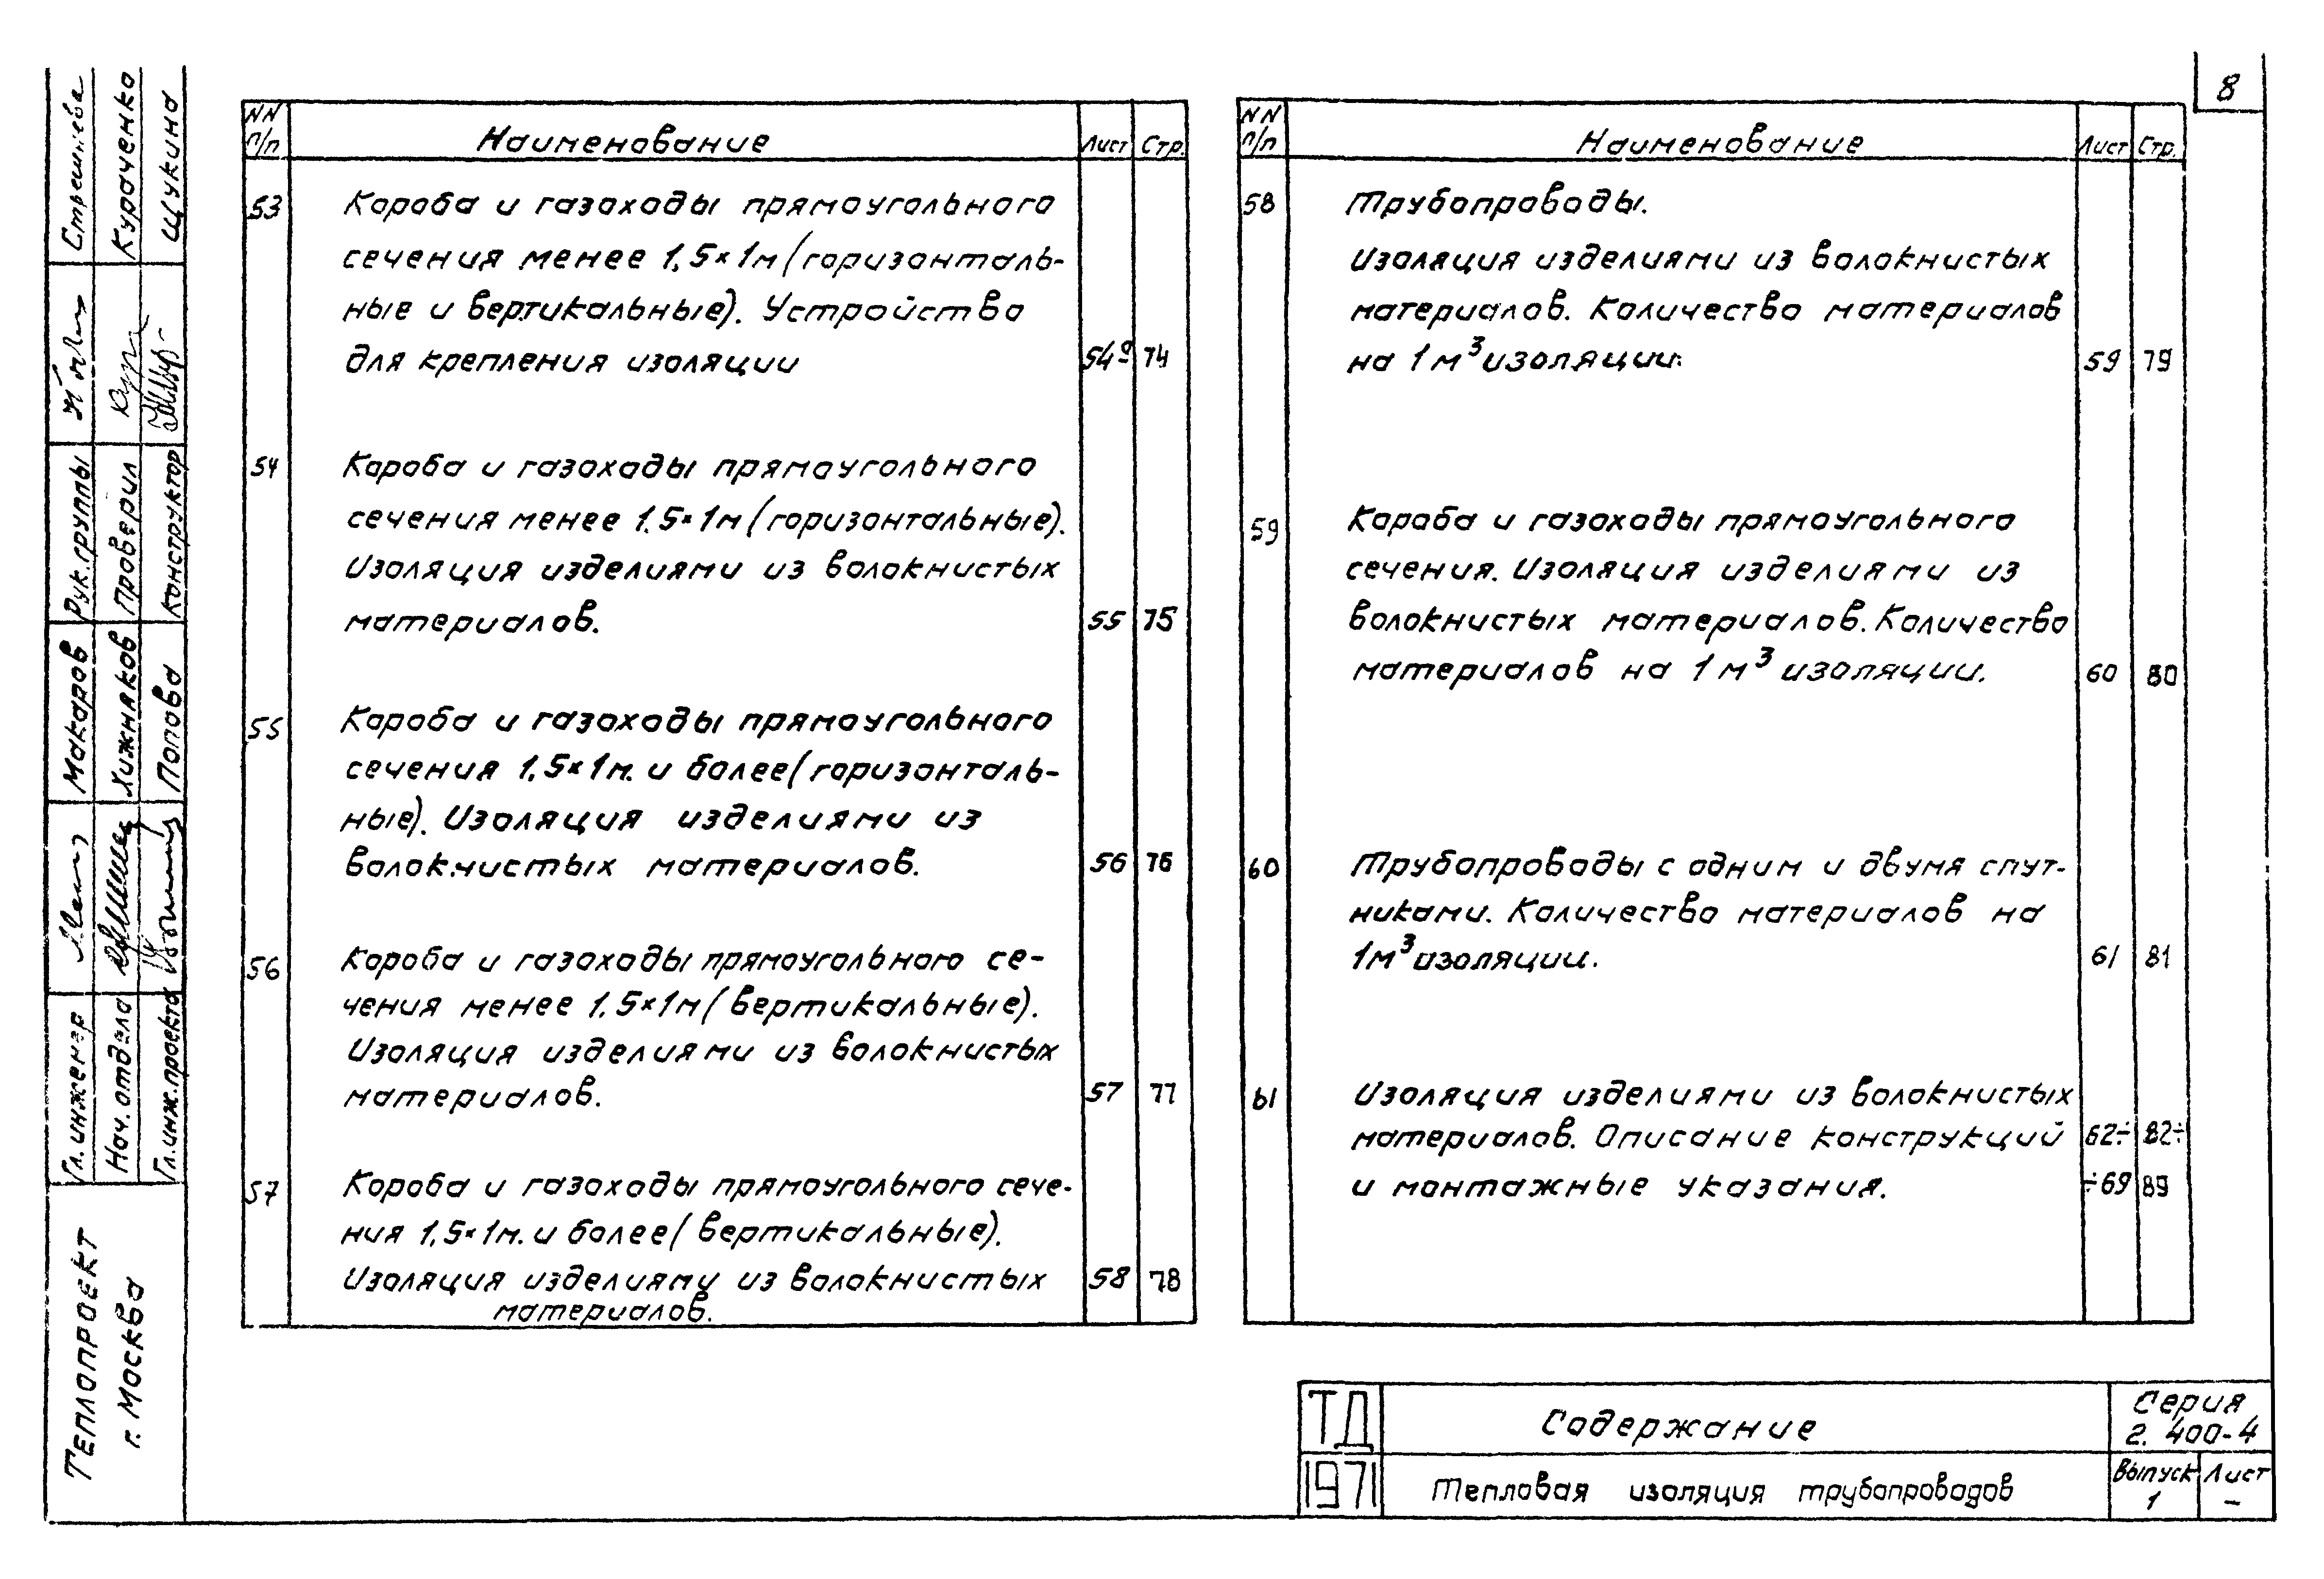 8
NN п/п Наименование Лист Стр.
53 Короба и газоходы прямоугольного
сечения менее 1,5×1м (горизонталь-
ные и вертикальные). Устройства
для крепления изоляции 54а 74
54 Короба и газоходы прямоугольного
сечения менее 1.5×1м (горизонтальные).
Изоляция изделиями из волокнистых
материалов. 55 75
55 Короба и газоходы прямоугольного
сечения 1,5×1м. и более (горизонталь-
ные). Изоляция изделиями из
волокнистых материалов. 56 76
56 Короба и газоходы прямоугольного се-
чения менее 1,5×1м (вертикальные).
Изоляция изделиями из волокнистых
материалов. 57 77
57 Короба и газоходы прямоугольного сече-
ния 1,5×1м. и более (вертикальные).
Изоляция изделиями из волокнистых 58 78
материалов.
NN п/п Наименование Лист Стр.
58 Трубопроводы.
Изоляция изделиями из волокнистых
материалов. Количество материалов
на 1м³ изоляции. 59 79
59 Короба и газоходы прямоугольного
сечения. Изоляция изделиями из
волокнистых материалов. Количество
материалов на 1м³ изоляции. 60 80
60 Трубопроводы с одним и двумя спут-
никами. Количество материалов на
1м³ изоляции. 61 81
61 Изоляция изделиями из волокнистых
материалов. Описание конструкций 62÷ 82÷
и монтажные указания. ÷69 89
ТД Содержание Серия
2.400-4
1971 Тепловая изоляция трубопроводов Выпуск Лист
1 –
Теплопроект
г. Москва
Гл. инженер Макаров Рук. группы
Нач. отдела Хижняков Проверил Кураченко
Гл. инж. проекта Попова Конструктор Щукина